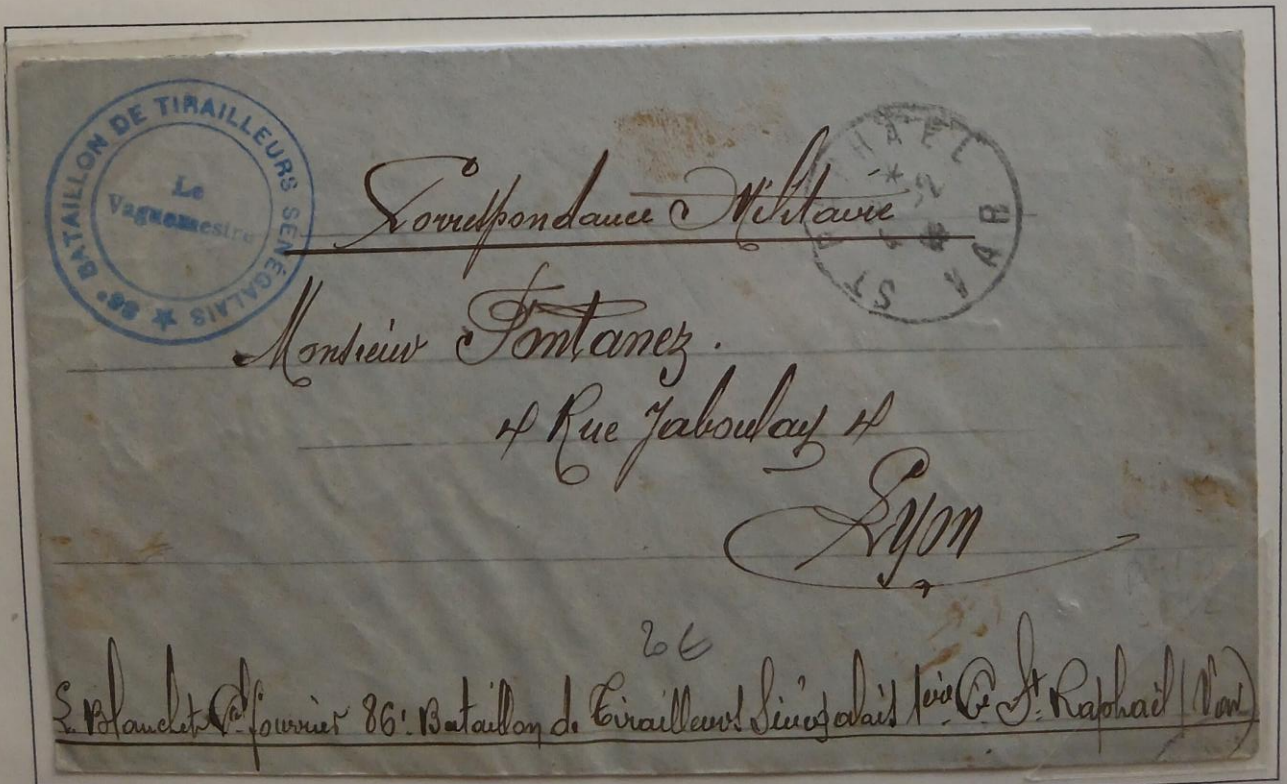 86e BATAILLON DE TIRAILLEURS SÉNÉGALAIS
Le
Vaguemestre
ST RAPHAEL
VAR
Correspondance Militaire
Monsieur Fontanez.
4 Rue Jaboulay 4
Lyon
E. Blanchet Cal fourrier 86e Bataillon de Tirailleurs Sénégalais 1ère Cie St. Raphaël (Var)